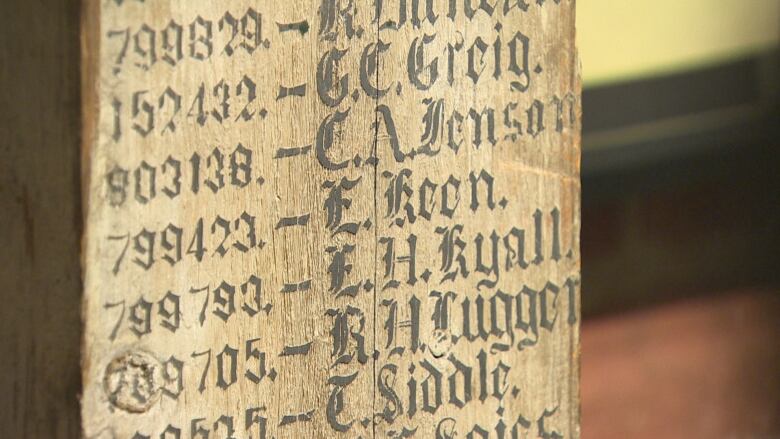 799829. - R. Duncan
152432. - G.C. Greig.
803138. - C.A. Jenson
799423. - E. Keen.
799793. - E.H. Kyall.
- R.H. Lugger
- T. Siddle.